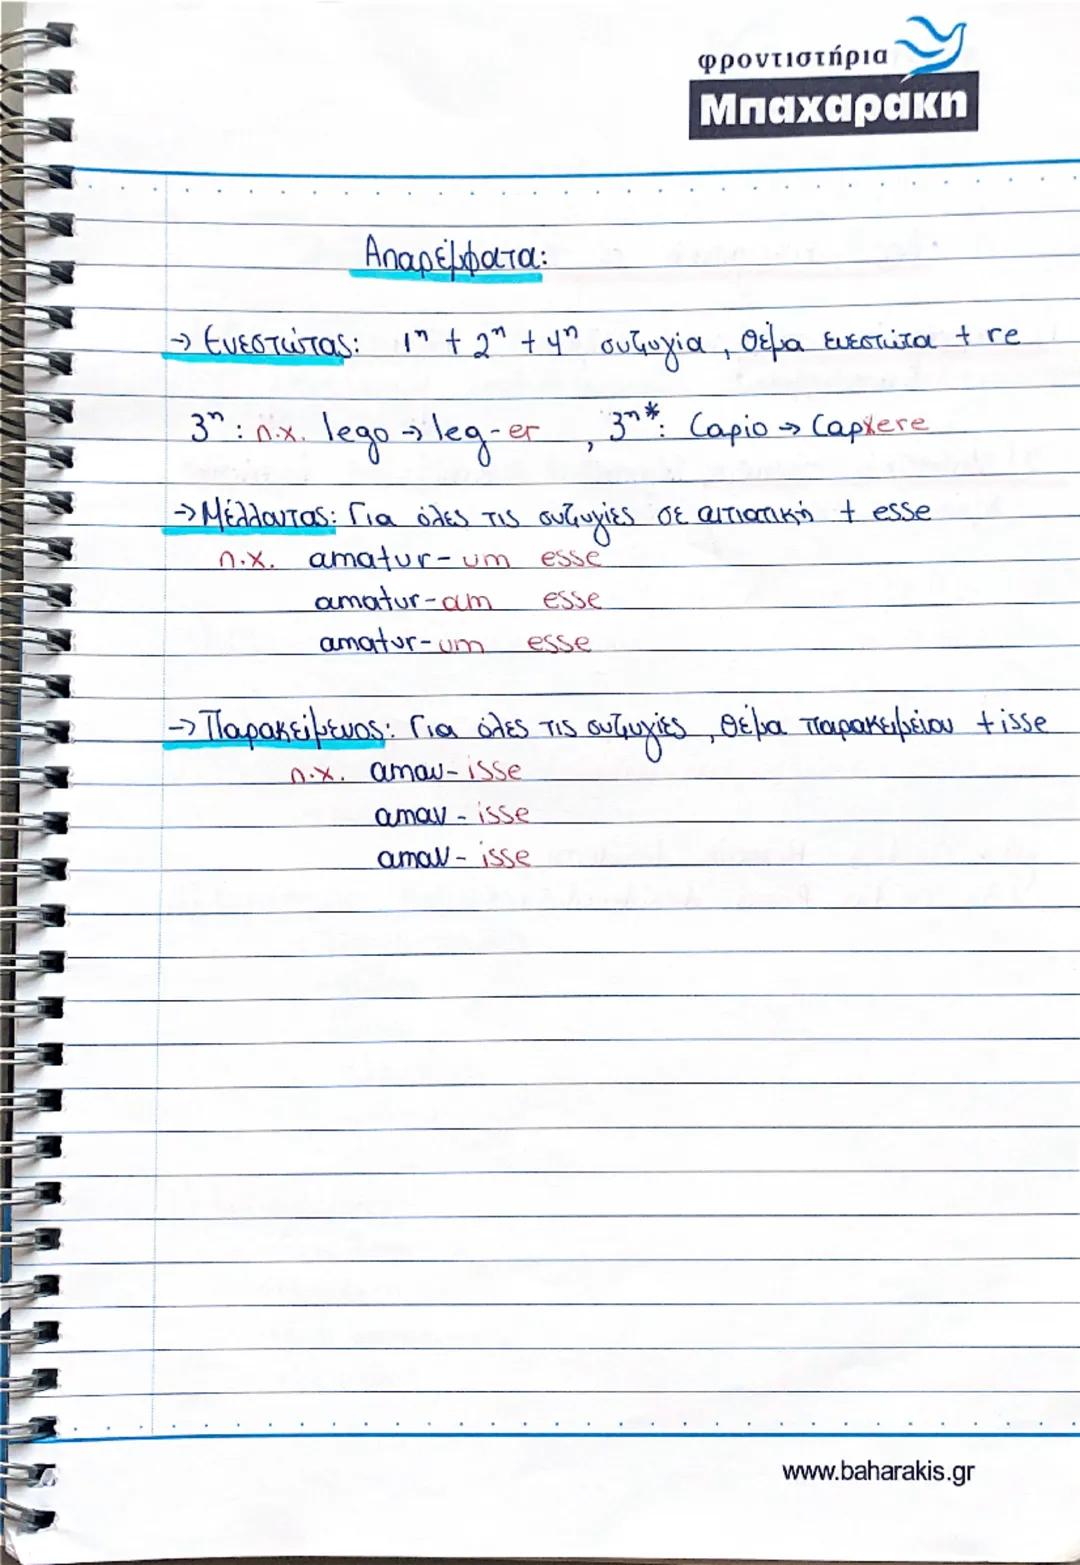 φροντιστήρια
Μπαχαράκη
Απαρέμφατα:
→ Ενεστώτας: 1η + 2η + 4η συζυγία, θέμα ενεστώτα + re
3η: π.χ. lego → leg-er , 3η*: Capio → Capere
→ Μέλλοντας: Για όλες τις συζυγίες σε αιτιατική + esse
π.χ. amatur-um esse
amatur-am esse
amatur-um esse
→ Παρακείμενος: Για όλες τις συζυγίες, θέμα παρακειμένου + isse
π.χ. amav-isse
amav - isse
amav - isse
www.baharakis.gr